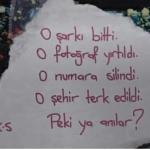 O şarkı bitti.
O fotoğraf yırtıldı.
O numara silindi.
O şehir terk edildi.
Peki ya anılar?